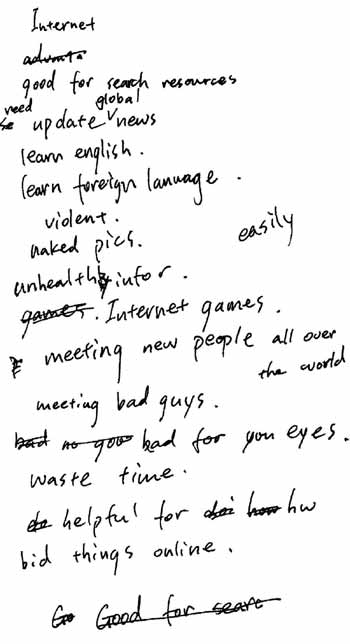 Internet
advanta
good for search resources
need global
update news
learn english.
learn foreign lanuage.
violent.
naked pics.
easily
unhealthy infor.
games. Internet games.
meeting new people all over
the world
meeting bad guys.
bad no goo bad for you eyes.
waste time.
helpful for how hw
bid things online.
Go Good for searc